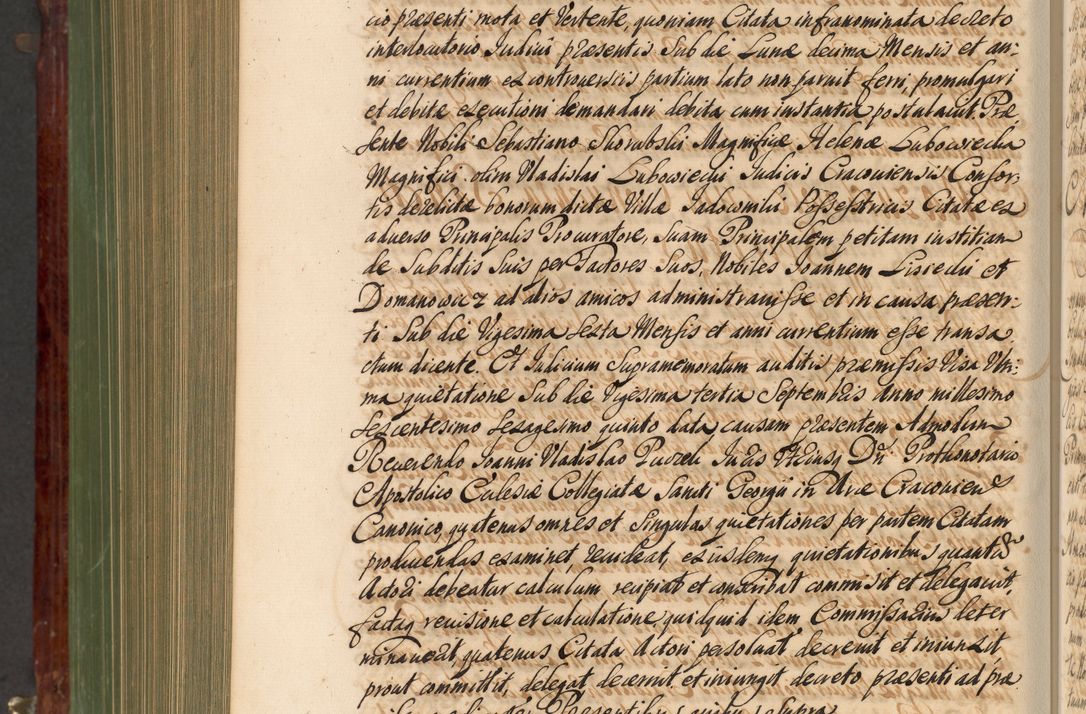 cio præsenti mota et Vertente, quoniam Citata infranominata decreto
interlocutorio Iudicii præsentis Sub die Lunæ decima Mensis et an-
ni currentium ex controversiis partium lato non paruit ferri, promulgari
et debitæ executioni demandari debita cum instantia postulavit. Præ
sente Nobili Sebastiano Skorubski Magnificæ Helenæ Lubowiecka
Magnifici olim Vladislai Lubowiecki Iudicis Cracoviensis Consor-
tis derelictæ bonorum dictæ Villæ Sadocomiki Possestricis Citatæ ex
adverso Principalis Procuratore, Suam Principalem petitam iustitiam
de Subditis Suis per Factores Suos, Nobiles Ioannem Lisiecki et
Domanowicz ad alios amicos administravisse et in causa præsen-
ti Sub die Vigesima Sexta Mensis et anni currentium esse transa
ctum dicente. Et Iudicium Supramemoratum auditis præmissis Visa Ulti-
ma quietatione Sub die Vigesima tertia Septembris Anno millesimo
Sexcentesimo Sexagesimo quinto data causam præsentem Admodum
Reverendo Ioanni Vladislao Puczek Iuris Utriusq Dri Prothonotario
Apostolico Ecclesiæ Collegiatæ Sancti Georgii in Arce Cracovien
Canonico, quatenus omnes et Singulas quietationes per partem Citatam
producendas examinet, revideat, ex iisdemq quietationibus quantū
Actori debeatur calculum recipiat et conscribat commisit et delegavit,
factaq revisione et calculatione, quidquid idem Commissarius deter
minaverit, quatenus Citata Actori persolvat decrevit et iniunxit
prout committit, delegat decernit et iniungit decreto præsenti ad præ
Præsentibus quibus supra